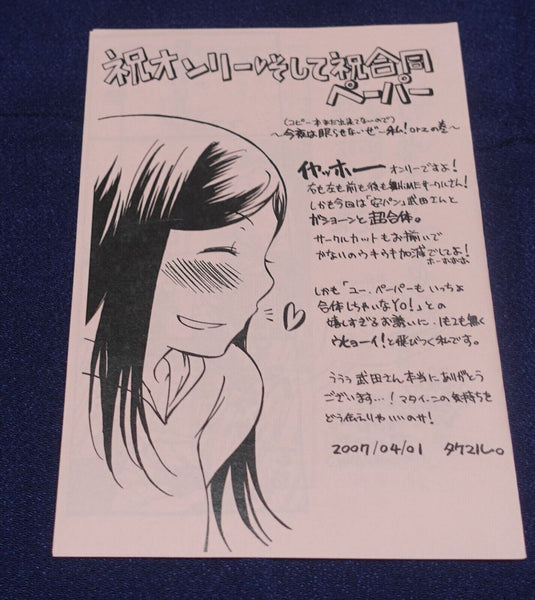 祝オンリー♡そして祝合同
ペーパー
(コピー本まだ出来てないので)
～今夜は眠らせないぜー私!orzの巻～
イヤッホー オンリーですよ!
右も左も前も後も舞HiMEサークルさん!
しかも今回は「安パン」武田さんと
ガショーンと超合体。
サークルカットもお揃いで
かないのウキウキ加減でしてよ!
ホーホホホ
しかも「ユー、ペーパーも いっちょ
合体しちゃいなYO!」との
嬉しすぎるお誘いに、1も2も無く
ウヒョーイ!と飛びつく私です。
ううう 武田さん本当にありがとう
ございます…!マタイーこの気持ちを
どう伝えりゃいいのサ!
2007/04/01 タケマル。